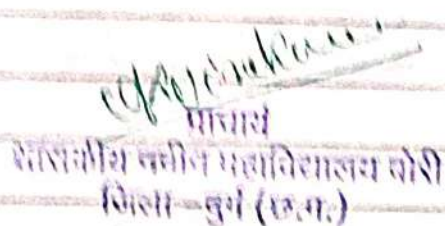 प्राचार्य
शासकीय नवीन महाविद्यालय बोरी
जिला-दुर्ग (छ.ग.)